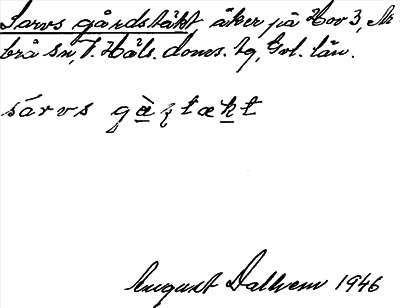 Sarvs gårdstäkt, åker på Hov 3, Ar-
brå sn, V. Häls. doms. hg, Gvl. län.
sárvs gàztækt
August Dalhem 1946